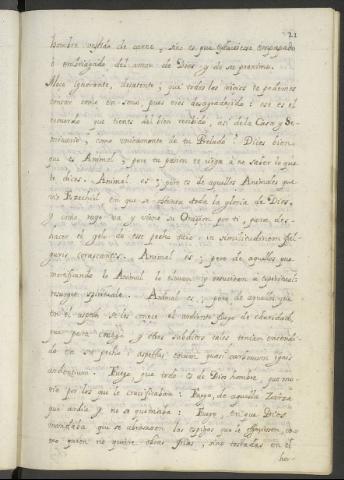 21
hombre vestido de carne, sino es que estuviesse empapado
ò embriagado del amor de Dios y de su proximo.
Moço ignorante, desatento, que todos los viejos te podemos
tomar como en sumi, pues eres desagradecido: ese es el
recuerdo que tienes del bien recibido, así de la Casa y Se-
minario, como unicamente de tu Prelado? Dices bien
que es Animal; pero tu pasion te ciega à no saber lo que
te dices. Animal es; pero es de aquellos Animales que
vio Ezechiel en que se estampa toda la gloria de Dios,
y como rayo va y viene su Oracion por ti, para des-
hacer el yelo de ese pecho frio: in similitudinem ful-
guris coruscantis. Animal es; pero de aquellos que
mortificando lo Animal lo elevan y resucitan à espiritual:
resurget spirituale. Animal es; pero de aquellos que
con el aspecto se les conoce el ardiente fuego de charidad,
que para contigo y otros subditos tales tenian encendi-
do en su pecho: aspectus eorum quasi carbonum ignis
ardentium. Fuego que todo es de Dios hombre, que mo-
ria por los que le crucificaban: Fuego, de aquella Zarza
que ardia y no se quemaba: Fuego, en que Dios
mandaba que se abrasasen las espigas que le ofreciesen, co-
mo quien no quiere obras frias, sino tostadas en el
hor-